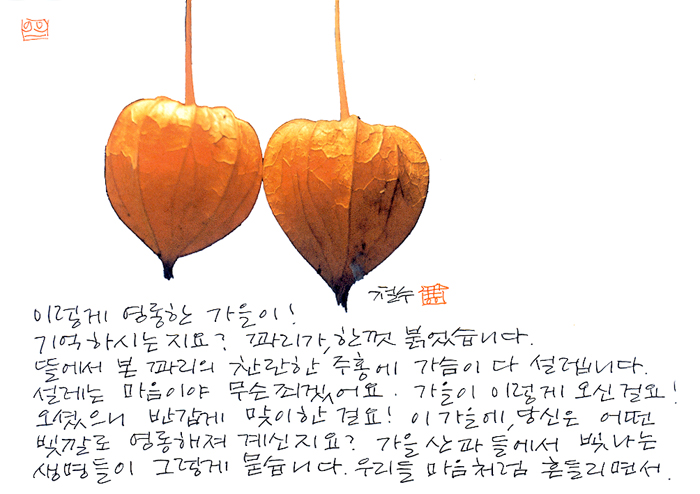 철수
이렇게 영롱한 가을이!
기억하시는지요? 꽈리가, 한껏 붉었습니다.
뜰에서 본 꽈리의 찬란한 주홍에 가슴이 다 설렙니다.
설레는 마음이야 무슨 죄겠어요. 가을이 이렇게 오신걸요!
오셨으니 반갑게 맞이한걸요! 이 가을에, 당신은 어떤
빛깔로 영롱해져 계신지요? 가을 산과 들에서 빛나는
생명들이 그렇게 묻습니다. 우리들 마음처럼 흔들리면서.